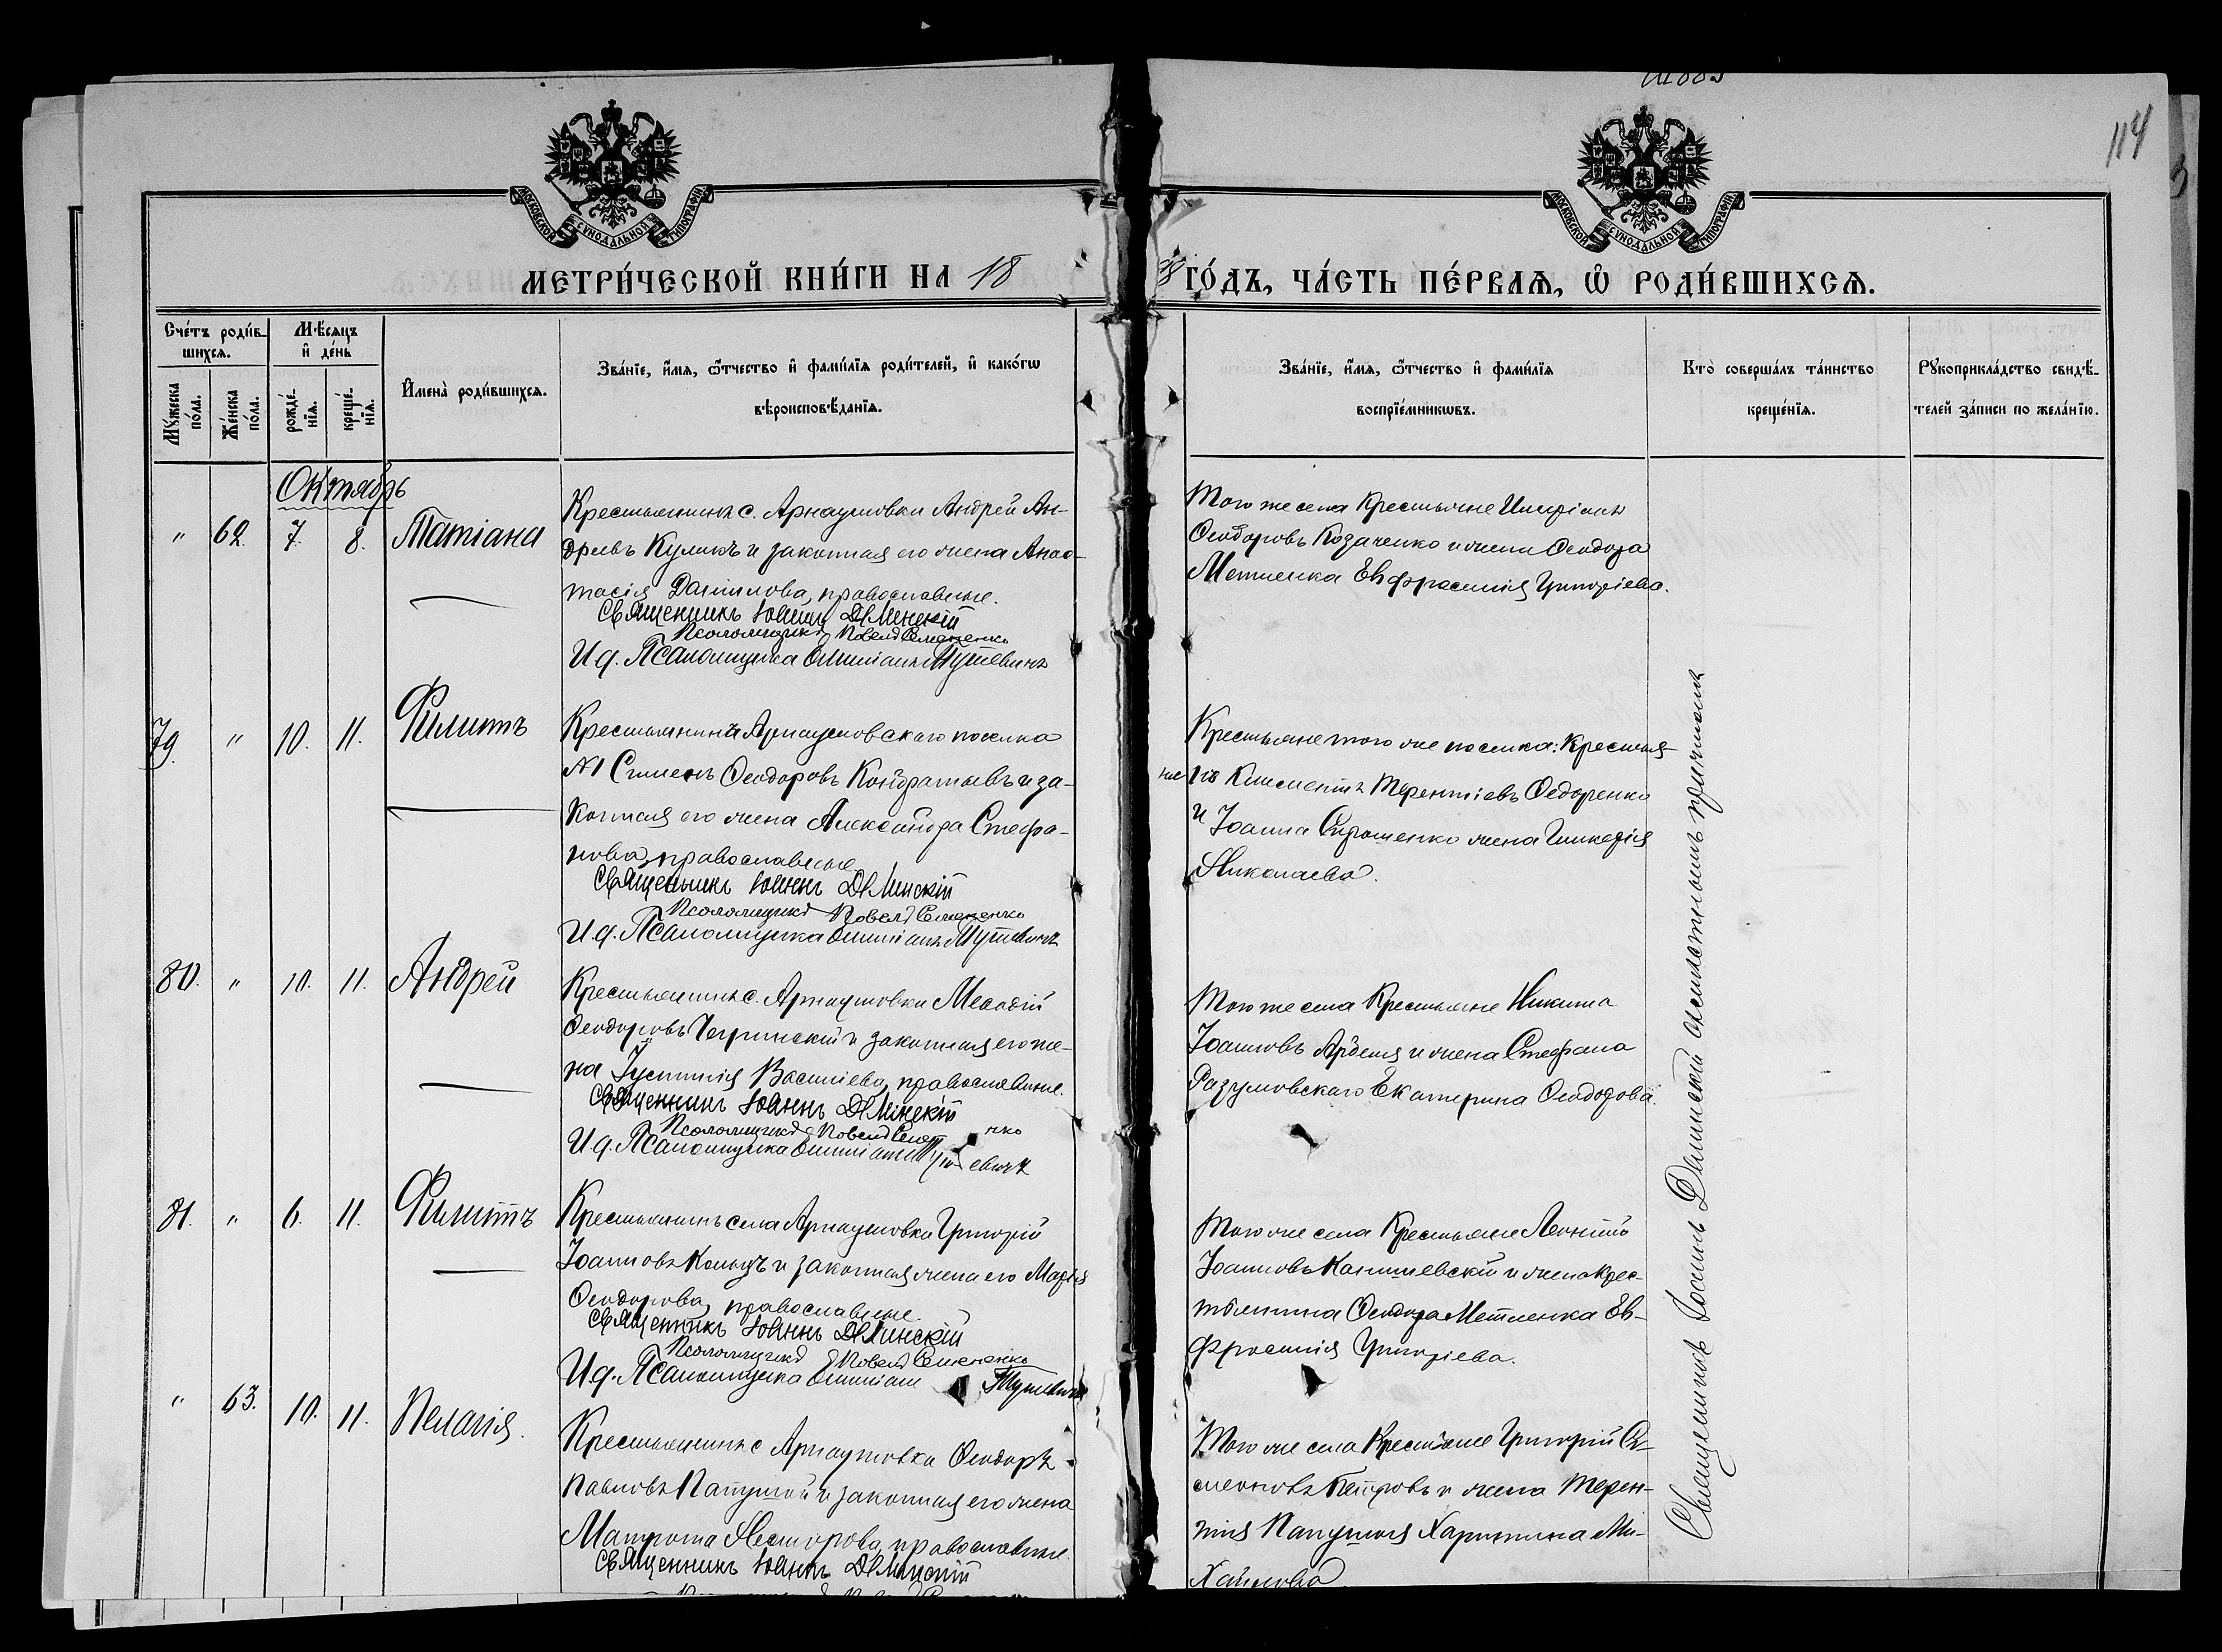 114
МОСКОВСКОЙ СѴНОДАЛЬНОЙ ТИПОГРАФІИ
МОСКОВСКОЙ СѴНОДАЛЬНОЙ ТИПОГРАФІИ
МЕТРИ́ЧЕСКОЙ КНИ́ГИ НА 18
ГО́ДЪ, ЧА́СТЬ ПЕ́РВАѦ, Ѿ РОДИ́ВШИХСѦ.
Сче́тъ роди́в-
шихсѧ.
Мѣ́сѧцъ
и҆ де́нь
Мꙋ́жеска по́ла.
Же́нска по́ла.
рожде́-
нїѧ.
креще́-
нїѧ.
И҆мена̀ роди́вшихсѧ.
Зва́нїе, и҆́мѧ, ѻ҆́тчество и҆ фами́лїѧ роди́телей, и҆ како́гѡ
вѣроисповѣ́данїѧ.
Зва́нїе, и҆́мѧ, ѻ҆́тчество и҆ фами́лїѧ
воспрїе́мникѡвъ.
Кто̀ соверша́лъ та́инство
креще́нїѧ.
Рꙋкоприкла́дство свидѣ́-
телей за́писи по жела́нїю.
Октябрь
" 62. 7. 8. Татіана
Крестьянинъ с. Арнаутовки Андрей Ан-
дреевъ Куликъ и законная его жена Анас-
тасія Даніилова, православные.
Священникъ Іоаннъ Длинскій
Псаломщикъ Павелъ Семененко
И д. Псаломщика
Того же села Крестьяне
Ѳеодоровъ Козаченко и жена Ѳеодора
Метленка Евфросинія Григоріева.
79. " 10. 11. Филиппъ
Крестьянинъ Арнаутовскаго поселка
№1 Симеонъ Ѳеодоровъ Кондратьевъ и за-
конная его жена Александра Стефа-
нова, православные
Священникъ Іоаннъ Длинскій
Псаломщикъ Павелъ Семененко
И. д. Псаломщика
Крестьяне того же поселка: Крестья-
нинъ Климентъ Терентіевъ Ѳедоренко
и Іоанна жена Гликерія
Николаева.
80. " 10. 11. Андрей
Крестьянинъ с. Арнаутовки Меѳодій
Ѳеодоровъ и законная его же-
на Іустинія Василіева, православные.
Священникъ Іоаннъ Длинскій
Псаломщикъ Павелъ
И д. Псаломщика
Того же села Крестьяне Никита
Іоанновъ и жена Стефана
Разумовскаго Екатерина Ѳеодорова.
81. " 6. 11. Филиппъ
Крестьянинъ села Арнаутовки Григорій
Іоанновъ и законная жена его Марія
Ѳеодорова, православные.
Священникъ Іоаннъ Длинскій
Псаломщикъ Павелъ Семененко
И д. Псаломщика
Того же села Крестьяне Леонтій
Іоанновъ и жена Крес-
тьянина Ѳеодора Метленка Ев-
фросинія Григоріева.
" 63. 10. 11. Пелагія.
Крестьянинъ с Арнаутовки Ѳеодоръ
Павловъ Папушой и законная его жена
Матрона Несторова, православные.
Священникъ Іоаннъ Длинскій
Того же села Крестьяне Григорій Си-
меоновъ Петровъ и жена Терен-
тія Папушоя Харитина Ми-
хайлова
Священникъ Іоаннъ Длинскій